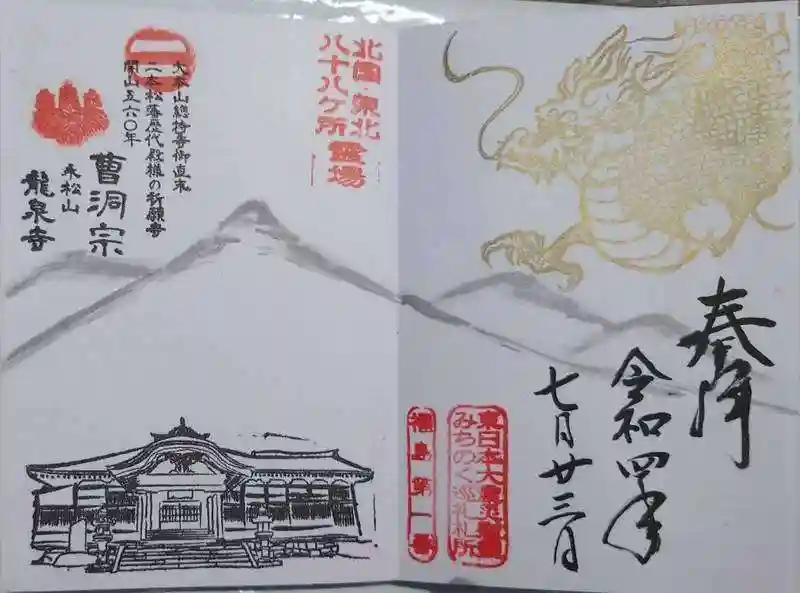 奉拝
令和四年
七月廿三日
東日本大震災
みちのく巡礼札所
福島第一番
北国・東北
八十八ケ所霊場
大本山總持寺御直末
二本松藩歴代殿様の祈願寺
開山五六〇年
曹洞宗
永松山
龍泉寺